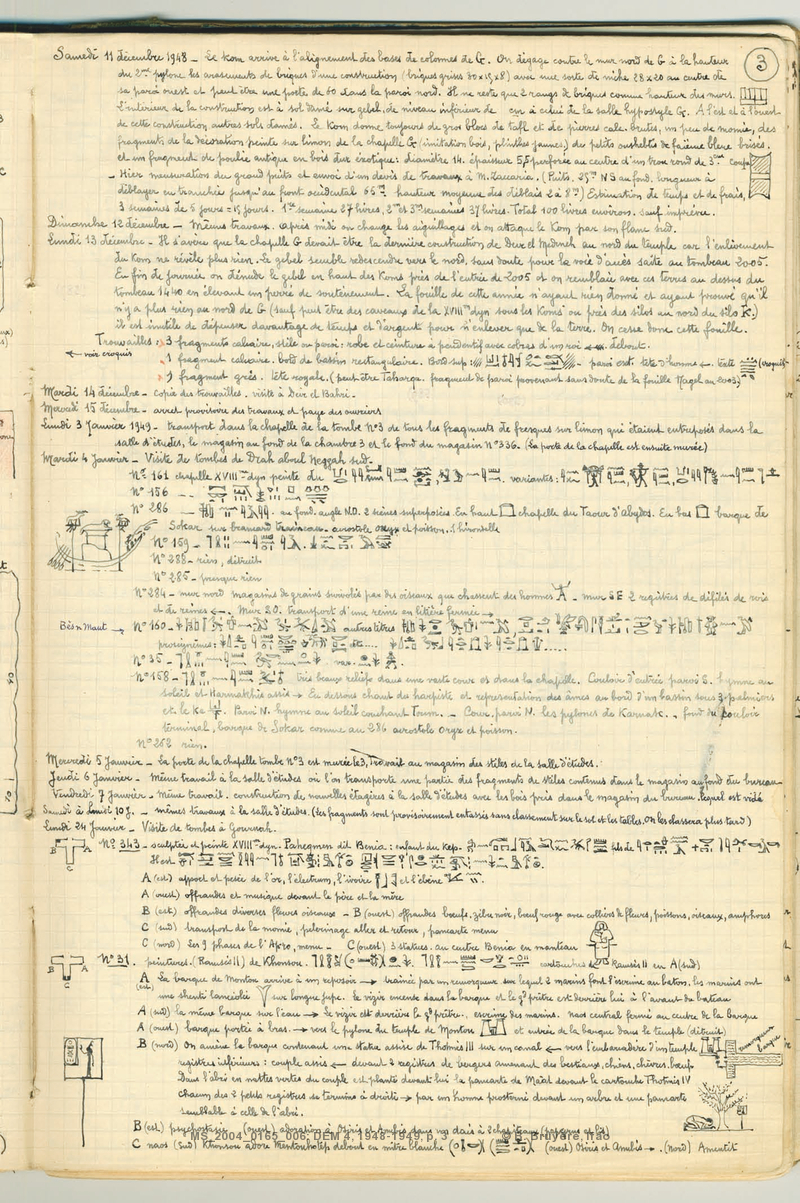 3
Samedi 11 décembre 1948 - Le Kom arrive à l'alignement des bases de colonnes de G. On dégage contre le mur nord de G à la hauteur
du 2me pylone les arasements de briques d'une construction (briques grises 30 x 15 x 8) avec une sorte de niche 28 x 20 au centre de
sa paroi ouest et peut être une porte de 60 dans la paroi nord. Il ne reste que 2 rangs de briques comme hauteur des murs.
L'intérieur de la construction est à sol damé sur gebel, de niveau inférieur de cm à celui de la salle hypostyle G. A l'est et à l'ouest
de cette construction autres sols damés. Le Kom donne toujours de gros blocs de tafl et de pierres cale. brutes, un peu de momie, des
fragments de la décoration peinte sur limon de la chapelle G (imitation bois, plinthes jaunes) de petits oushebtis de faïence bleue brisés.
et un fragment de poulie antique en bois dur exotique: diamètre 14. épaisseur 5,5 perforée au centre d'un trou rond de 3cm coupe
- Hier mensuration du grand puits et envoi d'un devis de travaux à M. Zaccaria. (Puits, 25m N S au fond. longueur à
déblayer en tranchée jusqu'au front occidental 66m. hauteur moyenne des déblais 2 à 8m) Estimation de temps et de frais,
3 semaines de 5 jours = 15 jours. 1re semaine 27 livres, 2me et 3me semaines 37 livres. Total 100 livres environ. sauf imprévu.
Dimanche 12 décembre - Mêmes travaux. après midi on change les aiguillages et on attaque le Kom par son flanc sud.
Lundi 13 décembre - Il s'avère que la chapelle G devait être la dernière construction de Deir el Médineh au nord du temple car l'enlèvement
du Kom ne révèle plus rien. Le gebel semble redescendre vers le nord, sans doute pour la voie d'accès saïte au tombeau 2005.
En fin de journée on dénude le gebel en haut des Koms près de l'entrée de 2005 et on remblaie avec ces terres au dessus du
tombeau 1440 en élevant un perré de soutènement. La fouille de cette année n'ayant rien donné et ayant prouvé qu'il
n'y a plus rien au nord de G (sauf peut être des caveaux de la XVIIIe dyn sous les Koms ou près des silos au nord du silo K.)
il est inutile de dépenser davantage de temps et d'argent pour n'enlever que de la terre. On cesse donc cette fouille.
Trouvailles: 3 fragments calcaire, stèle ou paroi: robe et ceinture à pendentif avec cobras d'un roi debout.
← voir croquis
1 fragment calcaire. bord de bassin rectangulaire. Bord sup: - paroi ext. tête d'homme ←. texte (croquis
1 fragment grès. tête royale. (peut être Taharqa. fragment de paroi provenant sans doute de la fouille Nagel au 2003)
Mardi 14 décembre - Copie des trouvailles. visite à Deir el Bahri.
Mercredi 15 décembre - arrêt provisoire des travaux et paye des ouvriers
Lundi 3 Janvier 1949 - transport dans la chapelle de la tombe N°3 de tous les fragments de fresques sur limon qui étaient entreposés dans la
salle d'études, le magasin au fond de la chambre 3 et le fond du magasin N°336. (La porte de la chapelle est ensuite murée)
Mardi 4 Janvier - Visite de tombes de Drah aboul Neggah sud.
N° 161 chapelle XVIIIme dyn peinte du variantes:
N° 156
N° 286 - au fond. angle N.O. 2 scènes superposées. En haut chapelle du Taour d'Abydos. En bas barque de
Sokar sur brancard traineau. acrostole oryx et poisson. hirondelle
N° 159 -
N° 288 - rien, détruit
N° 285 - presque rien
N° 284 - mur nord magasins de grains survolés par des oiseaux que chassent des hommes - mur S E 2 registres de défilés de rois
et de reines ←. Mur S.O. transport d'une reine en litière fermée →
Bès n Maut → N° 160 - autres titres
N° 35 - var.
N° 158 - très beaux reliefs dans une vaste cour et dans la chapelle. Couloir d'entrée paroi S. hymne au
soleil et Harmakhis assis → En dessous chant du harpiste et représentation des âmes au bord d'un bassin sous 3 palmiers
et le Ka. Paroi N. hymne au soleil couchant Toum. - Cour, paroi N. les pylones de Karnak. - fond du couloir
terminal, barque de Sokar comme au 286 acrostole Oryx et poisson.
N° 262 rien.
Mercredi 5 Janvier - La porte de la chapelle tombe N°3 est murée. Travail au magasin des stèles de la salle d'études.
Jeudi 6 Janvier - Même travail à la salle d'études où l'on transporte une partie des fragments de stèles contenus dans le magasin au fond du bureau
Vendredi 7 Janvier - Même travail. construction de nouvelles étagères à la salle d'études avec les bois pris dans le magasin du bureau lequel est vidé
Samedi 8 Lundi 10 J. - mêmes travaux à la salle d'études. (les fragments sont provisoirement entassés sans classement sur le sol et les tables. On les classera plus tard)
Lundi 24 Janvier - Visite de tombes à Gournah.
N° 343 - sculptée et peinte XVIIIme dyn. Paheqmen dit Benia: enfant du Kep. fils de
Il est
A (est) apport et pesée de l'or, l'électrum, l'ivoire et l'ébène
A (ouest) offrandes et musique devant le père et la mère
B (est) offrandes diverses fleurs oiseaux - B (ouest) offrandes bœufs, zébu noir, bœuf rouge avec colliers de fleurs, poissons, oiseaux, amphores
C (sud) transport de la momie, pélerinage aller et retour, pancarte menu
C (nord) Les 9 phases de l'Ap.ro, menu - C (ouest) 3 statues. au centre Benia en manteau
N° 31. peintures. (Ramsès II) de Khonsou. cartouches Ramsès II en A (sud)
A (est) La barque de Montou arrive à un reposoir → trainée par un remorqueur sur lequel 2 marins font l'escrime au baton. les marins ont
une shenti lancéolée sur longue jupe. le vizir encense dans la barque et le gd prêtre est derrière lui à l'avant du bateau
A (sud) la même barque sur l'eau → Le vizir est derrière le gd prêtre. escrime des marins. naos central fermé au centre de la barque
A (ouest) barque portée à bras. → vers le pylone du temple de Montou et entrée de la barque dans le temple (détruit)
B (nord) On amène la barque contenant une statue assise de Thotmès III sur un canal ← vers l'embarcadère d'un temple
registres inférieurs: couple assis ← devant 2 registres de bergers amenant des bestiaux, chiens, chèvres, bœufs
Dans l'abri en nattes vertes du couple est planté devant lui la pancarte de Maat devant le cartouche Thotmès IV
Chacun des 2 petits registres se termine à droite → par un homme prosterné devant un arbre et une pancarte
semblable à celle de l'abri.
B (est) psychostasie (ouest) adoration à Osiris et Anubis dans un dais
C naos (sud) Khonsou adore Mentouhotep debout en mitre blanche (ouest) Osiris et Anubis →. (nord) Amentit
MS_2004_0165_006, DEM 4, 1948-1949, p. 3 © B. Bruyère, Ifao